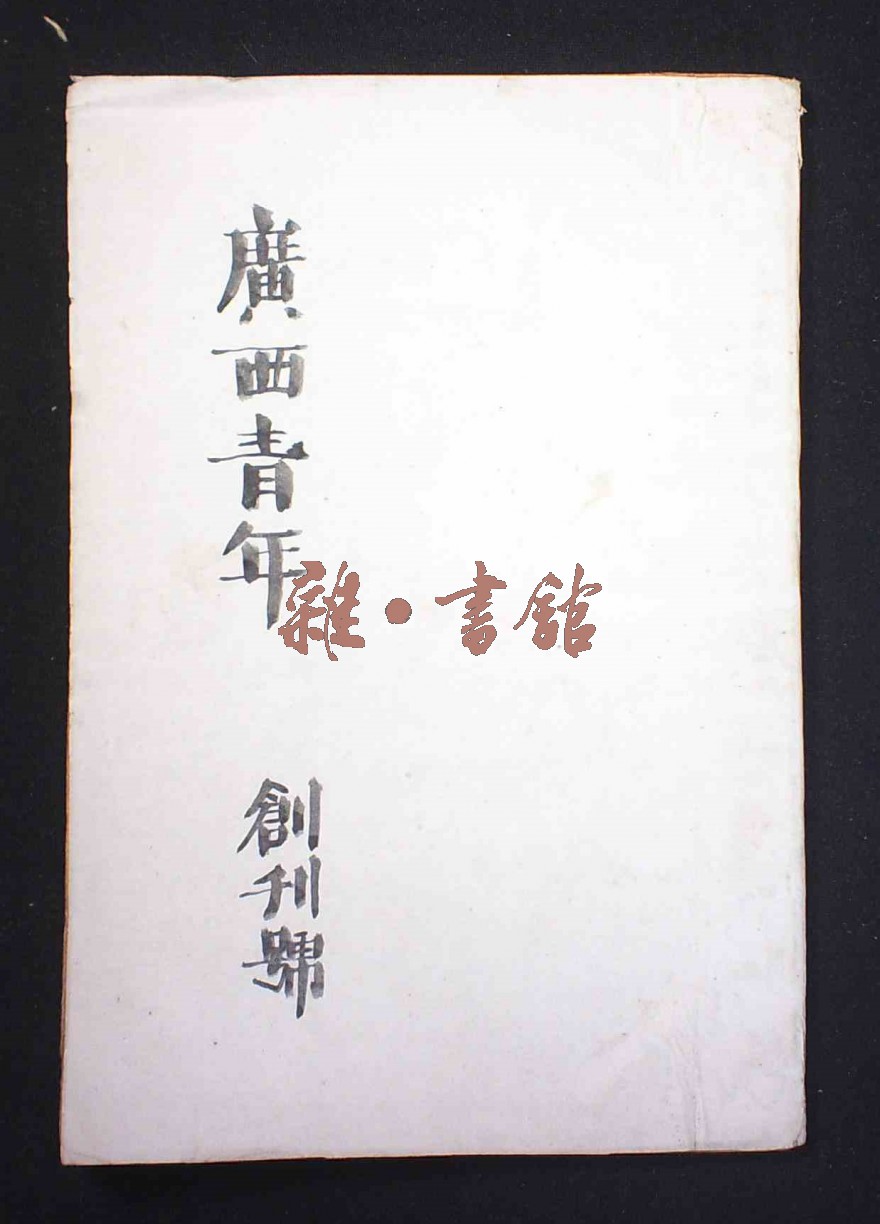 廣西青年
創刊號
雜·書館